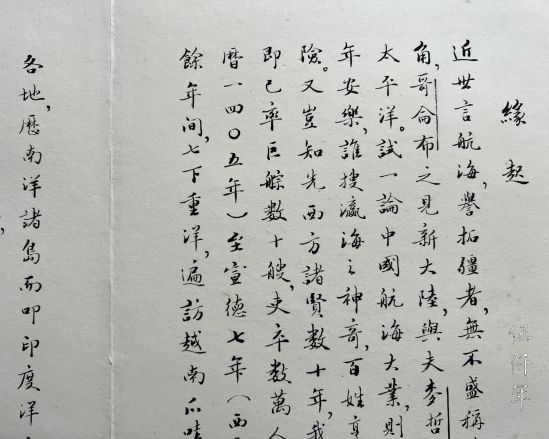 緣起
近世言航海，譽拓疆者，無不盛稱
角，哥侖布之見新大陸，與夫麥哲
太平洋。試一論中國航海大業，則
年安樂，誰搜瀛海之神奇，百姓
險。又豈知先西方諸賢數十年，我
即已率巨艅數十艘，吏卒數萬人
曆一四〇五年）至宣德七年（西
餘年间，七下重洋，遍訪越南爪哇
各地，歷南洋諸島而叩印度洋
伍仟年